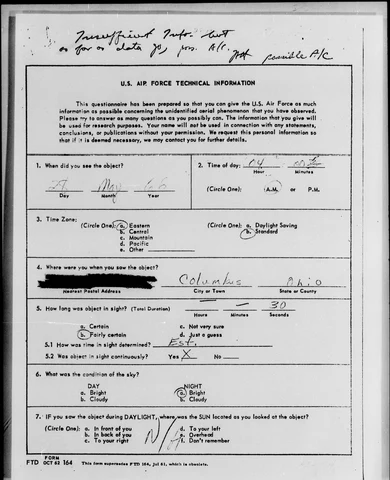 Insufficient Info. but
as far as data go, pos. A/C. not possible A/C
U.S. AIR FORCE TECHNICAL INFORMATION
This questionnaire has been prepared so that you can give the U.S. Air Force as much
information as possible concerning the unidentified aerial phenomenon that you have observed.
Please try to answer as many questions as you possibly can. The information that you give will
be used for research purposes. Your name will not be used in connection with any statements,
conclusions, or publications without your permission. We request this personal information so
that if it is deemed necessary, we may contact you for further details.
1. When did you see the object?
May 66
Day Month Year
2. Time of day: 04
Hour Minutes
(Circle One): A.M. or P.M.
3. Time Zone:
(Circle One): a. Eastern
b. Central
c. Mountain
d. Pacific
e. Other
(Circle One): a. Daylight Saving
b. Standard
4. Where were you when you saw the object?
Columbus Ohio
Nearest Postal Address City or Town State or County
5. How long was object in sight? (Total Duration) — — 30
Hours Minutes Seconds
a. Certain c. Not very sure
b. Fairly certain d. Just a guess
5.1 How was time in sight determined? Est.
5.2 Was object in sight continuously? Yes X No
6. What was the condition of the sky?
DAY NIGHT
a. Bright a. Bright
b. Cloudy b. Cloudy
7. IF you saw the object during DAYLIGHT, where was the SUN located as you looked at the object?
(Circle One): a. In front of you d. To your left
b. In back of you e. Overhead
c. To your right f. Don't remember
N/A
FORM
FTD OCT 62 164 This form supersedes FTD 164, Jul 61, which is obsolete.